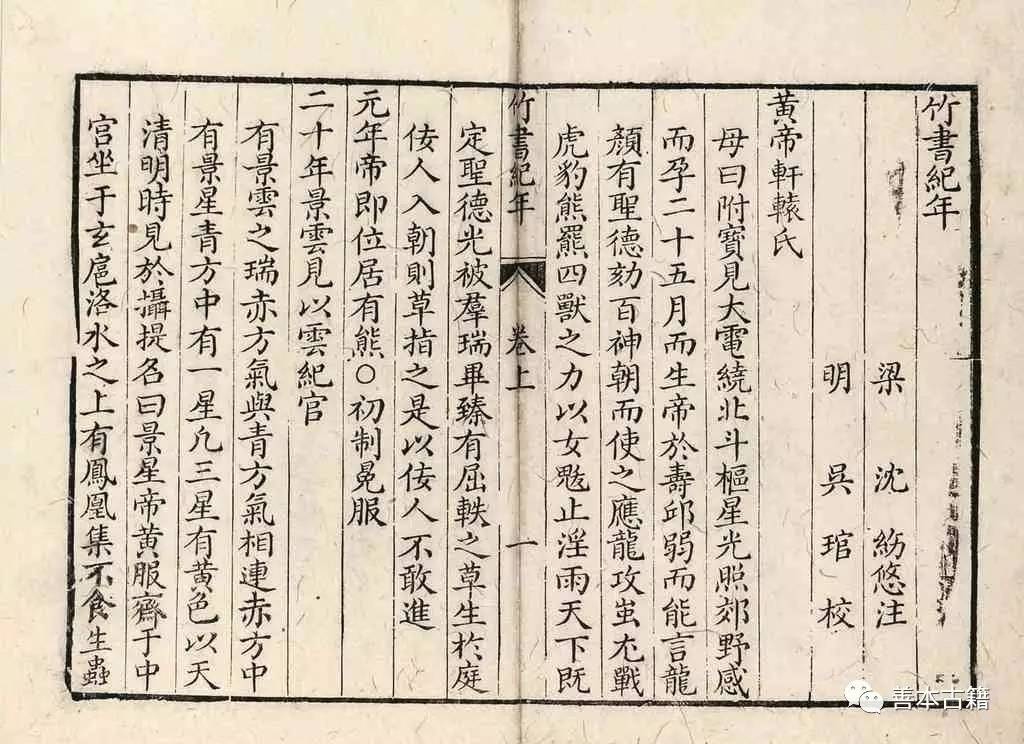 竹書紀年
梁沈約悠注
明吳琯校
黃帝軒轅氏
母曰附寶見大電繞北斗樞星光照郊野感
而孕二十五月而生帝於壽邱弱而能言龍
顏有聖德劾百神朝而使之應龍攻蚩尤戰
虎豹熊羆四獸之力以女魃止淫雨天下既
竹書紀年 卷上 一
定聖德光被羣瑞畢臻有屈軼之草生於庭
佞人入朝則草指之是以佞人不敢進
元年帝即位居有熊○初制冕服
二十年景雲見以雲紀官
有景雲之瑞赤方氣與青方氣相連赤方中
有景星青方中有一星凡三星有黃色以天
清明時見於攝提名曰景星帝黃服齋于中
宮坐于玄扈洛水之上有鳳凰集不食生蟲
善本古籍